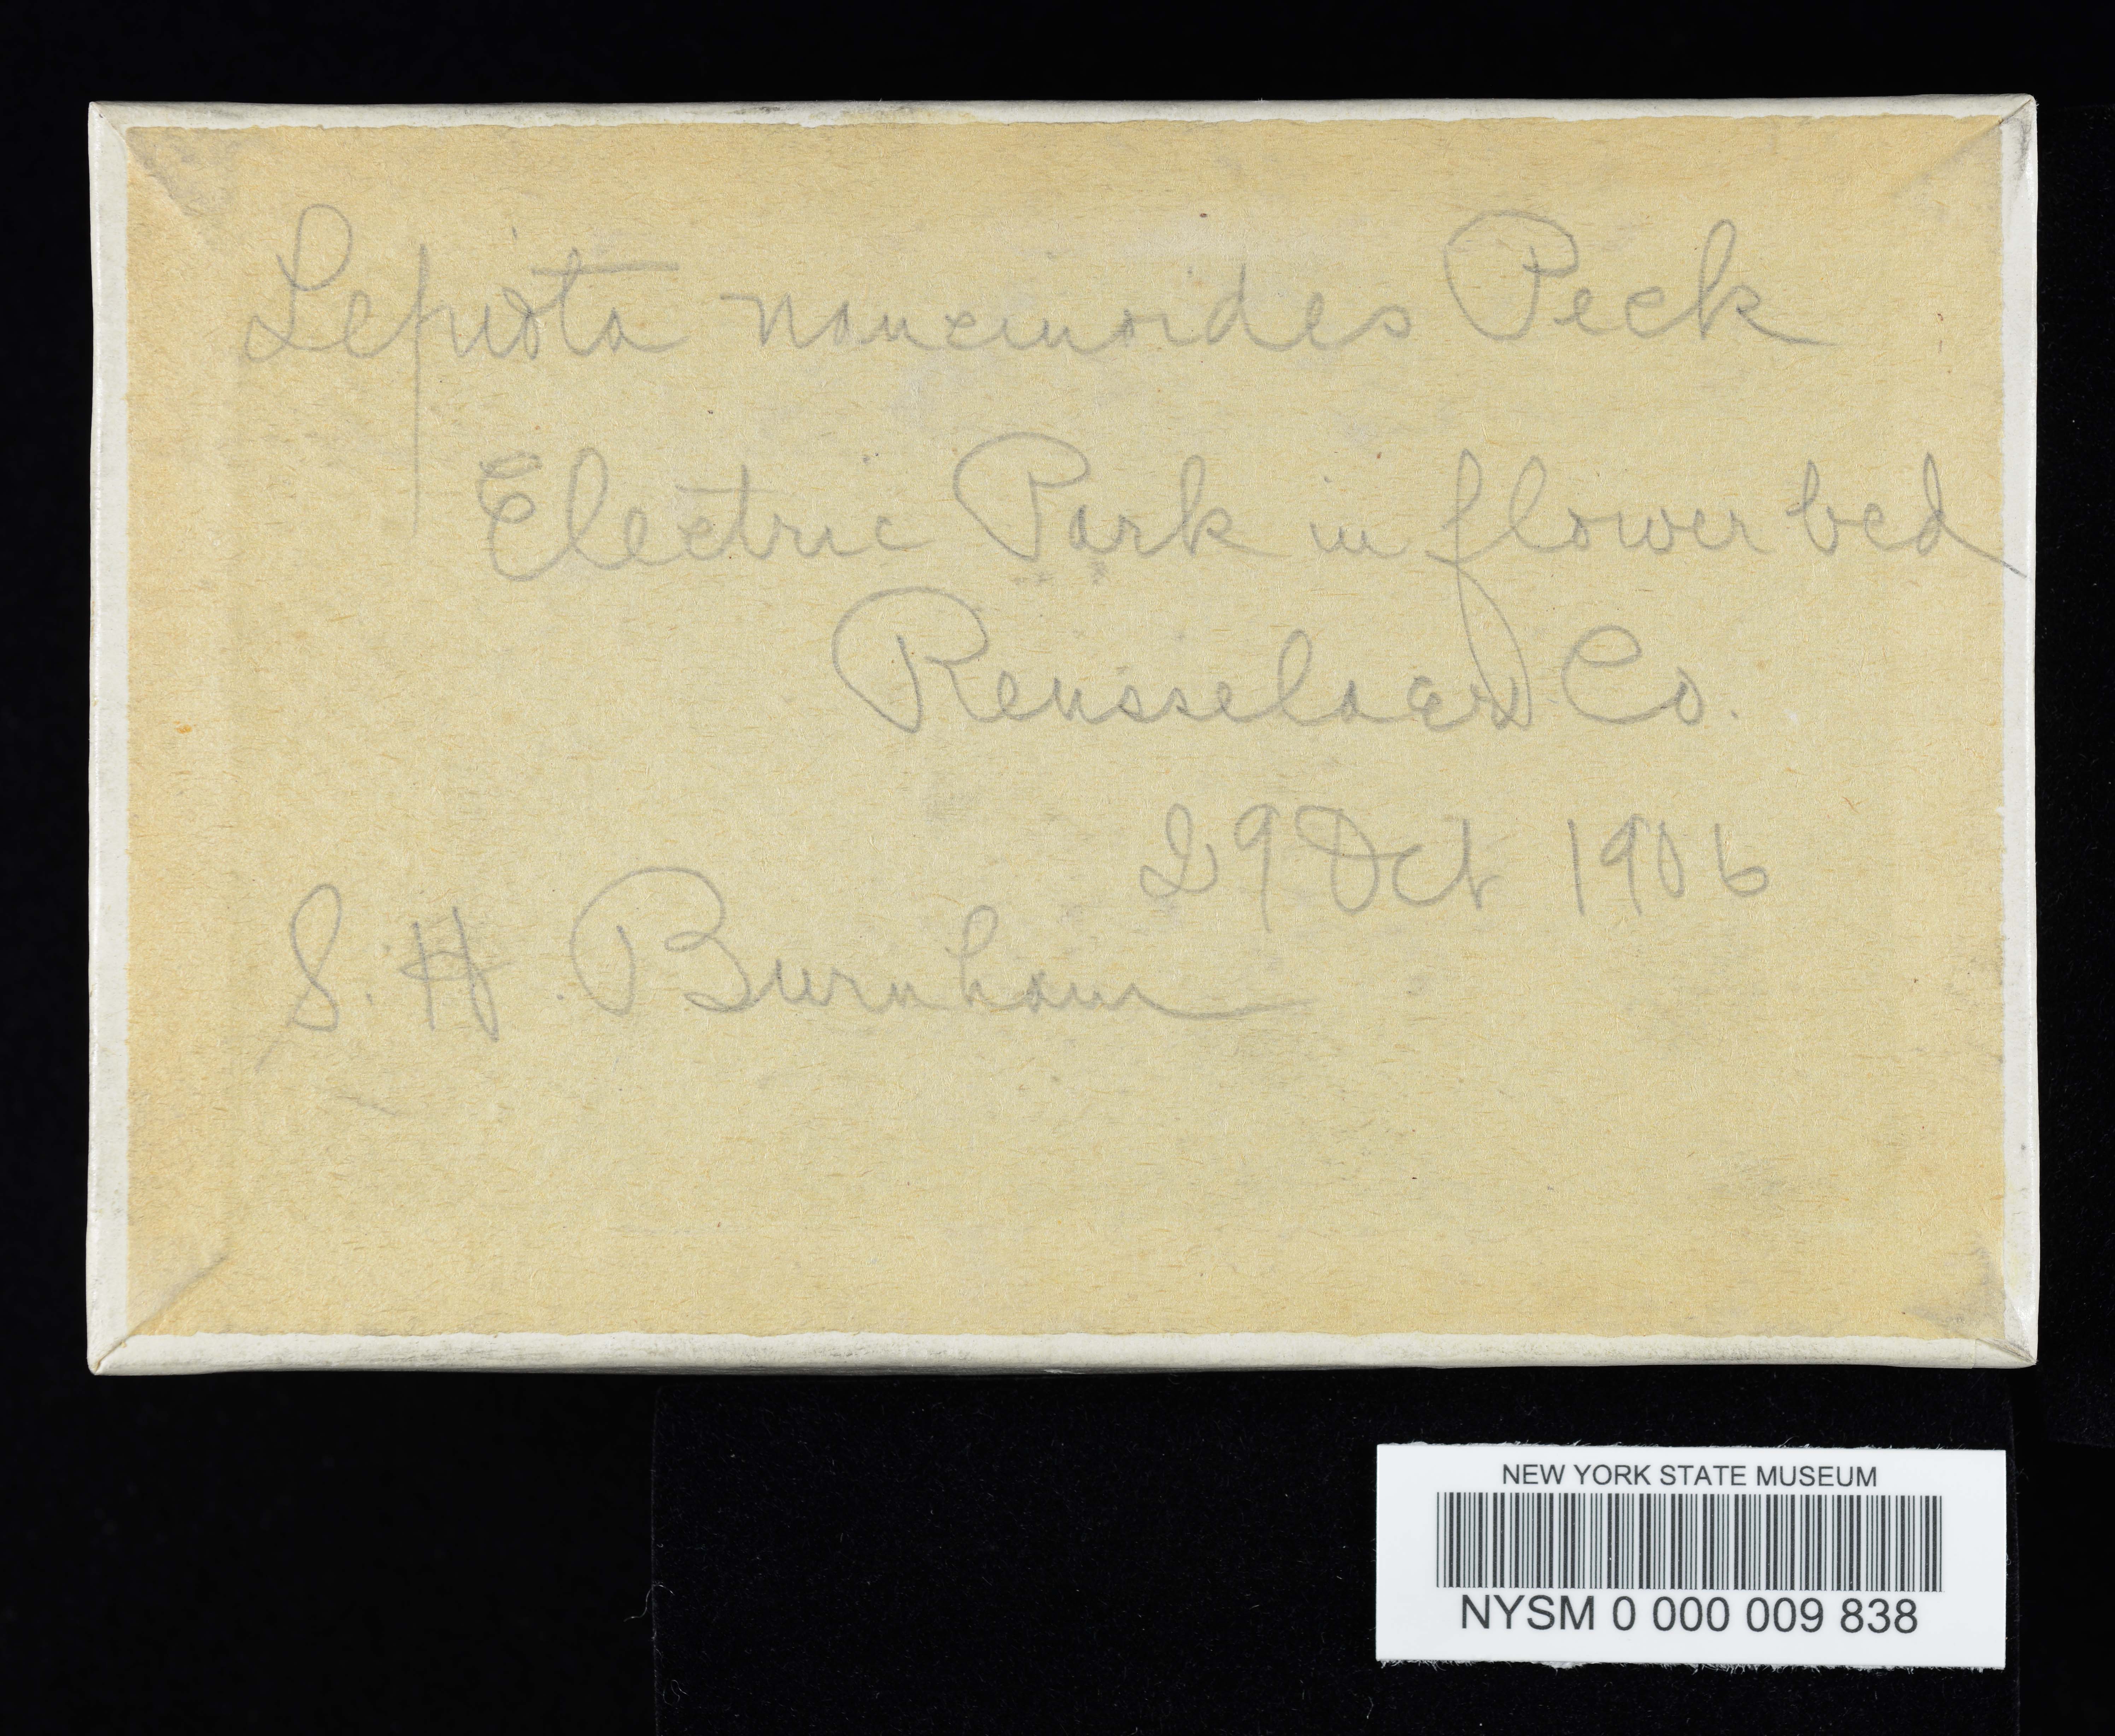 Lepiota naucinoides Peck
Electric Park in flower bed
Rensselaer Co.
29 Oct 1906
S. H. Burnham
NEW YORK STATE MUSEUM
NYSM 0 000 009 838